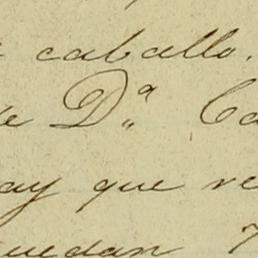 caballo.
de D.ª Ca
ay que ve
quedan 7